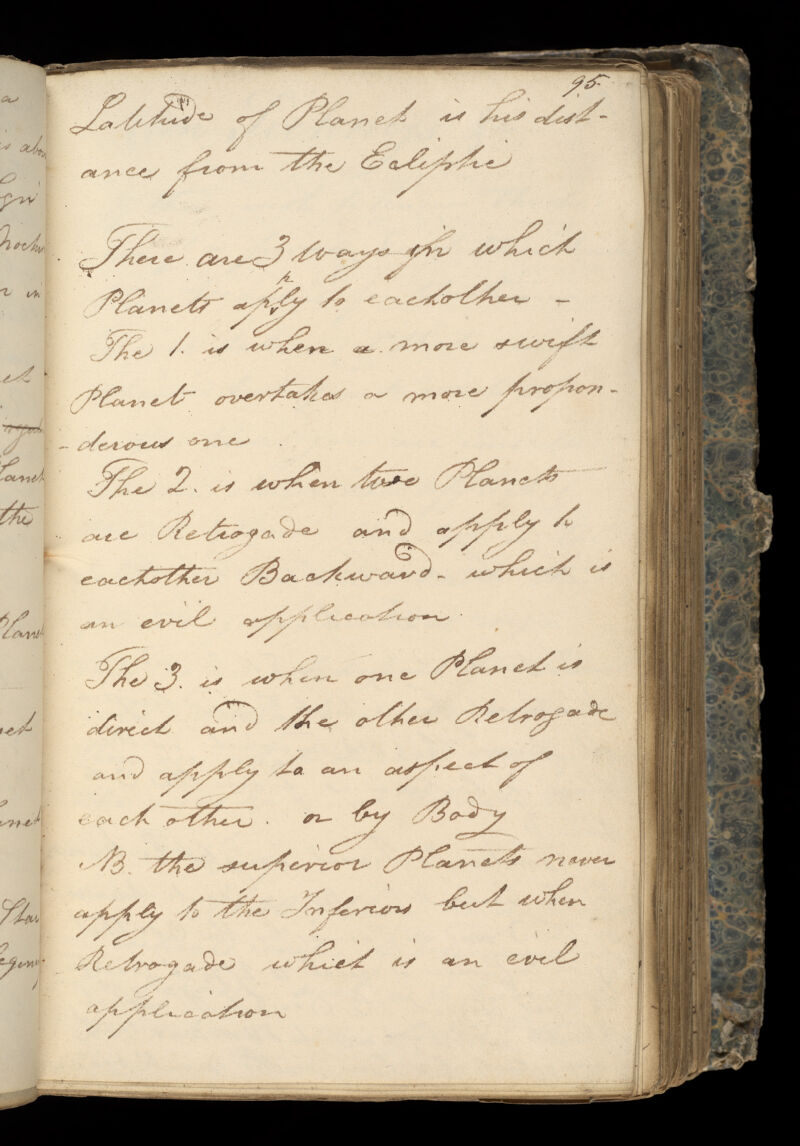 95.
Latitude of Planet is his dist-
ance from the Ecliptic
There are 3 ways in which
Planets apply to eachother -
The 1. is when a more swift
Planet overtakes a more propon-
-derous one
The 2. is when two Planets
are Retrogade and apply to
eachother Backward - which is
an evil application
The 3. is when one Planet is
direct and the other Retrogade
and apply to an aspect of
each other. or by Body
NB. the superior Planets never
apply to the Inferiors but when
Retrogade which is an evil
application
a
is abov
in
et
Planet
the
Plane
et
Star